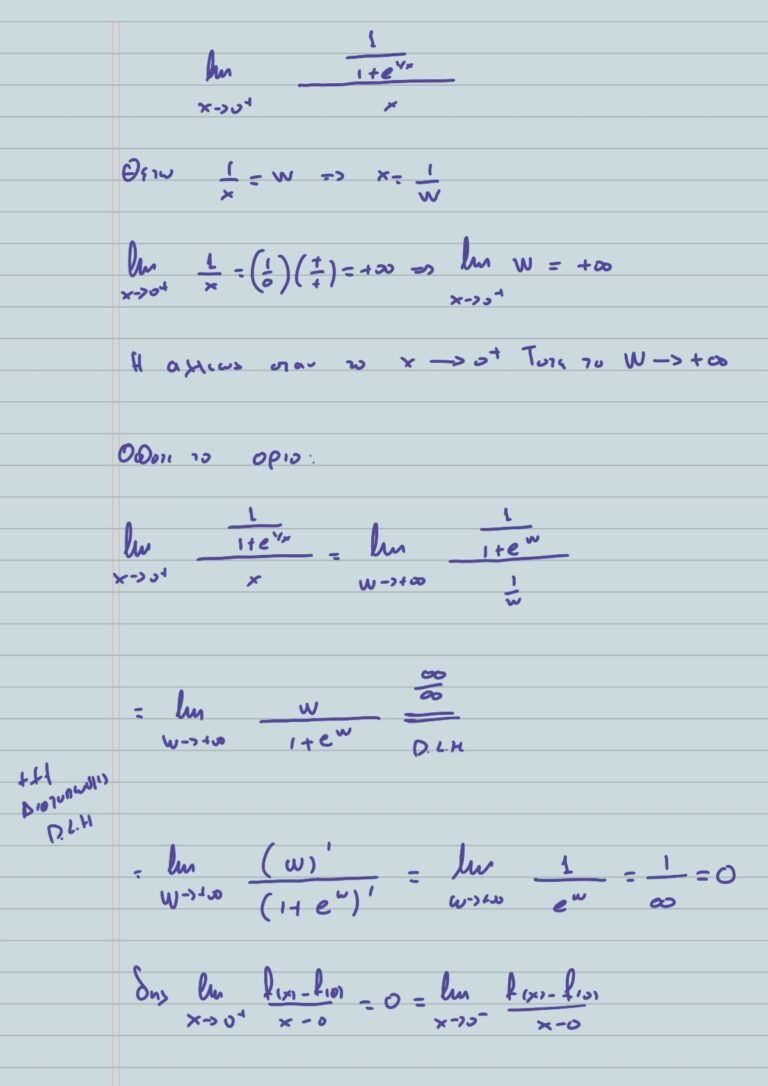 lim_{x→0⁺} (1/(1+e^{1/x}))/x
Θετω 1/x = w ⇒ x = 1/w
lim_{x→0⁺} 1/x = (1/0)(+/+) = +∞ ⇒ lim_{x→0⁺} w = +∞
Η αλλιως οταν το x → 0⁺ Τοτε το w → +∞
Οποτε το οριο:
lim_{x→0⁺} (1/(1+e^{1/x}))/x = lim_{w→+∞} (1/(1+e^w))/(1/w)
= lim_{w→+∞} w/(1+e^w) =^{∞/∞}_{D.L.H}
D.L.H
= lim_{w→+∞} (w)'/(1+e^w)' = lim_{w→+∞} 1/e^w = 1/∞ = 0
δης lim_{x→0⁺} (f(x)-f(0))/(x-0) = 0 = lim_{x→0⁻} (f(x)-f(0))/(x-0)